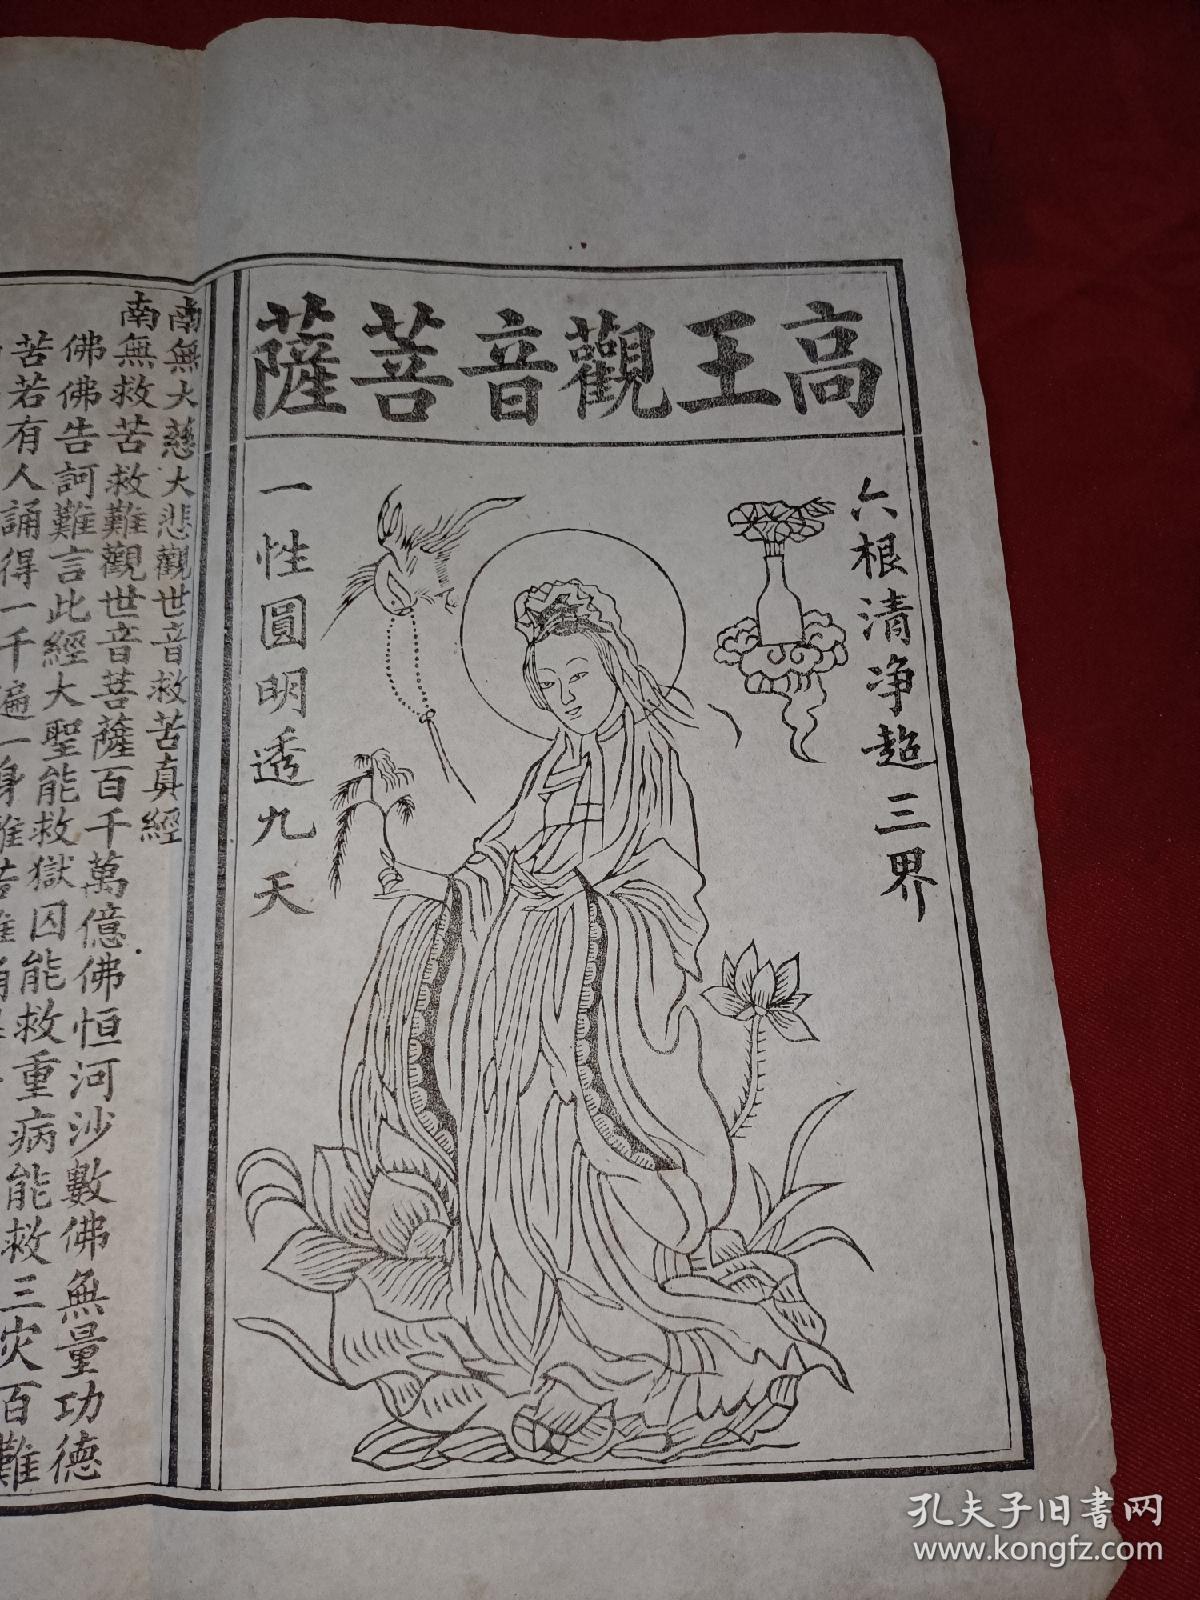 高王觀音菩薩
六根清净超三界
一性圓明透九天
南無大慈大悲觀世音救苦真經
南無救苦救難觀世音菩薩百千萬億佛恒河沙數佛無量功德
佛佛告訶難言此經大聖能救獄囚能救重病能救三灾百難
苦若有人誦得一千遍一身離苦難
孔夫子旧书网
www.kongfz.com